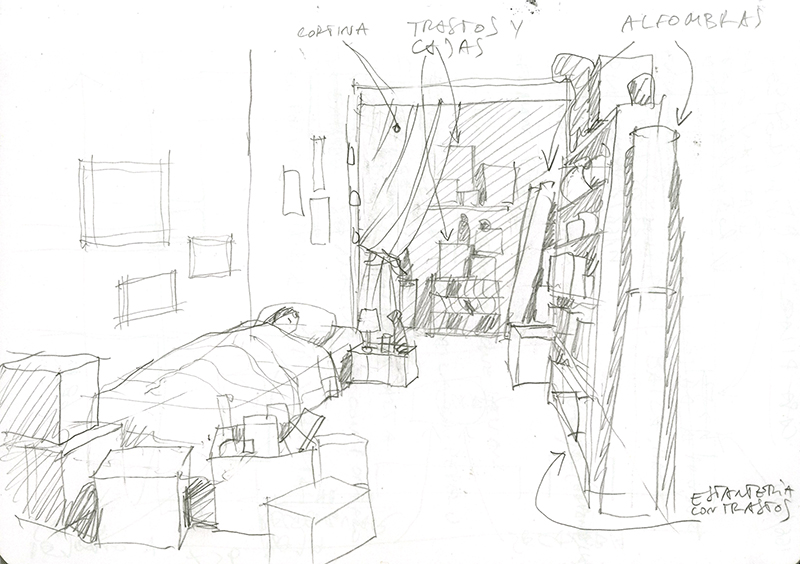 CORTINA
TRASTOS Y
CAJAS
ALFOMBRAS
ESTANTERÍA
CON TRASTOS